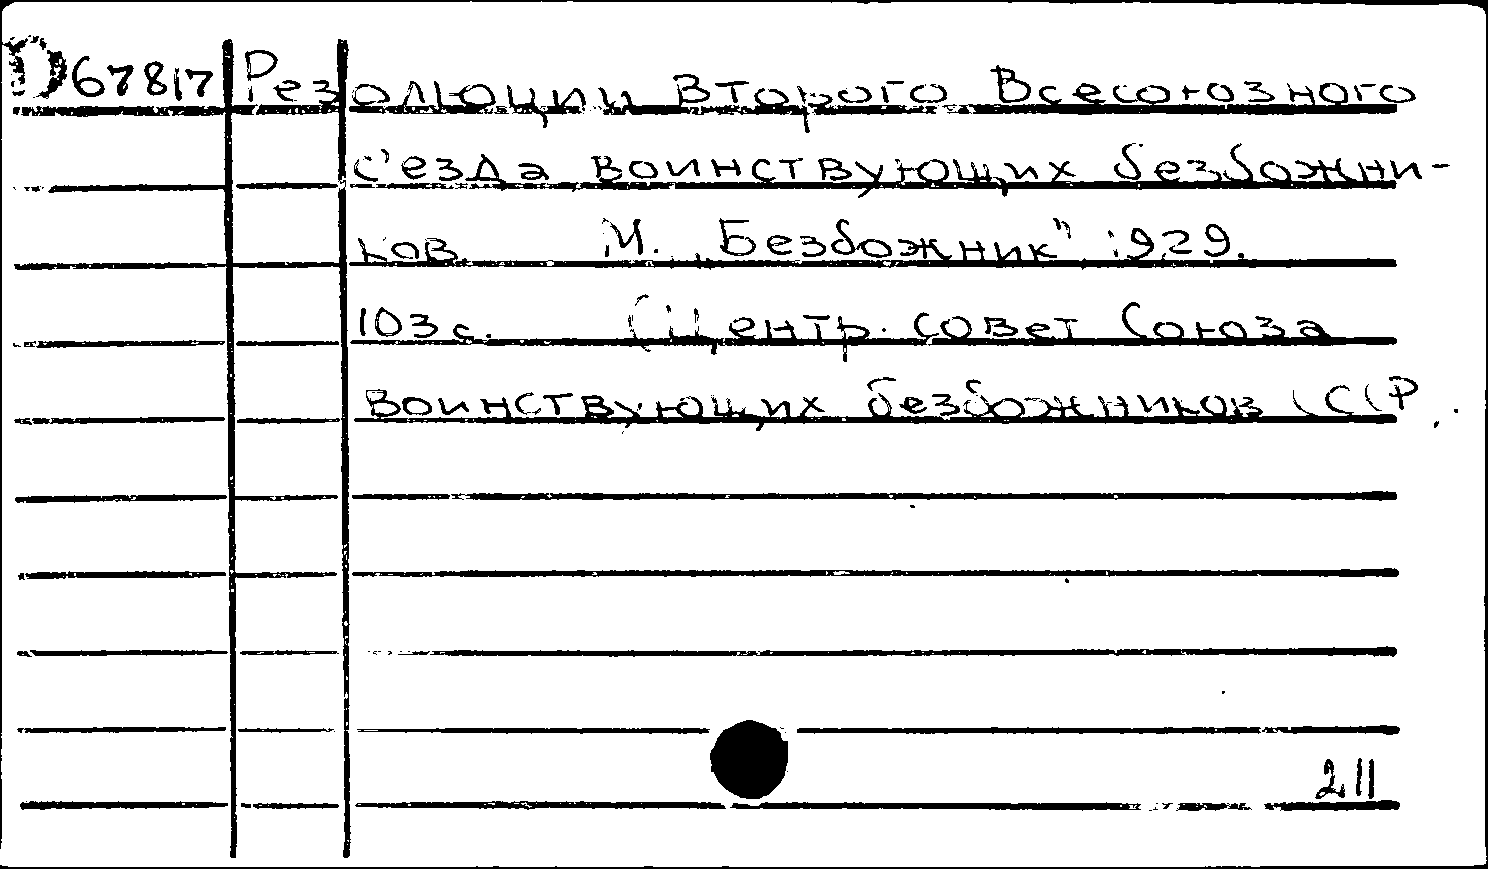 D67817 Резолюции второго Всесоюзного
с'езда воинствующих безбожни-
ков. М. „Безбожник" 1929.
103 с. (Центр. совет Союза
воинствующих безбожников СССР.
211